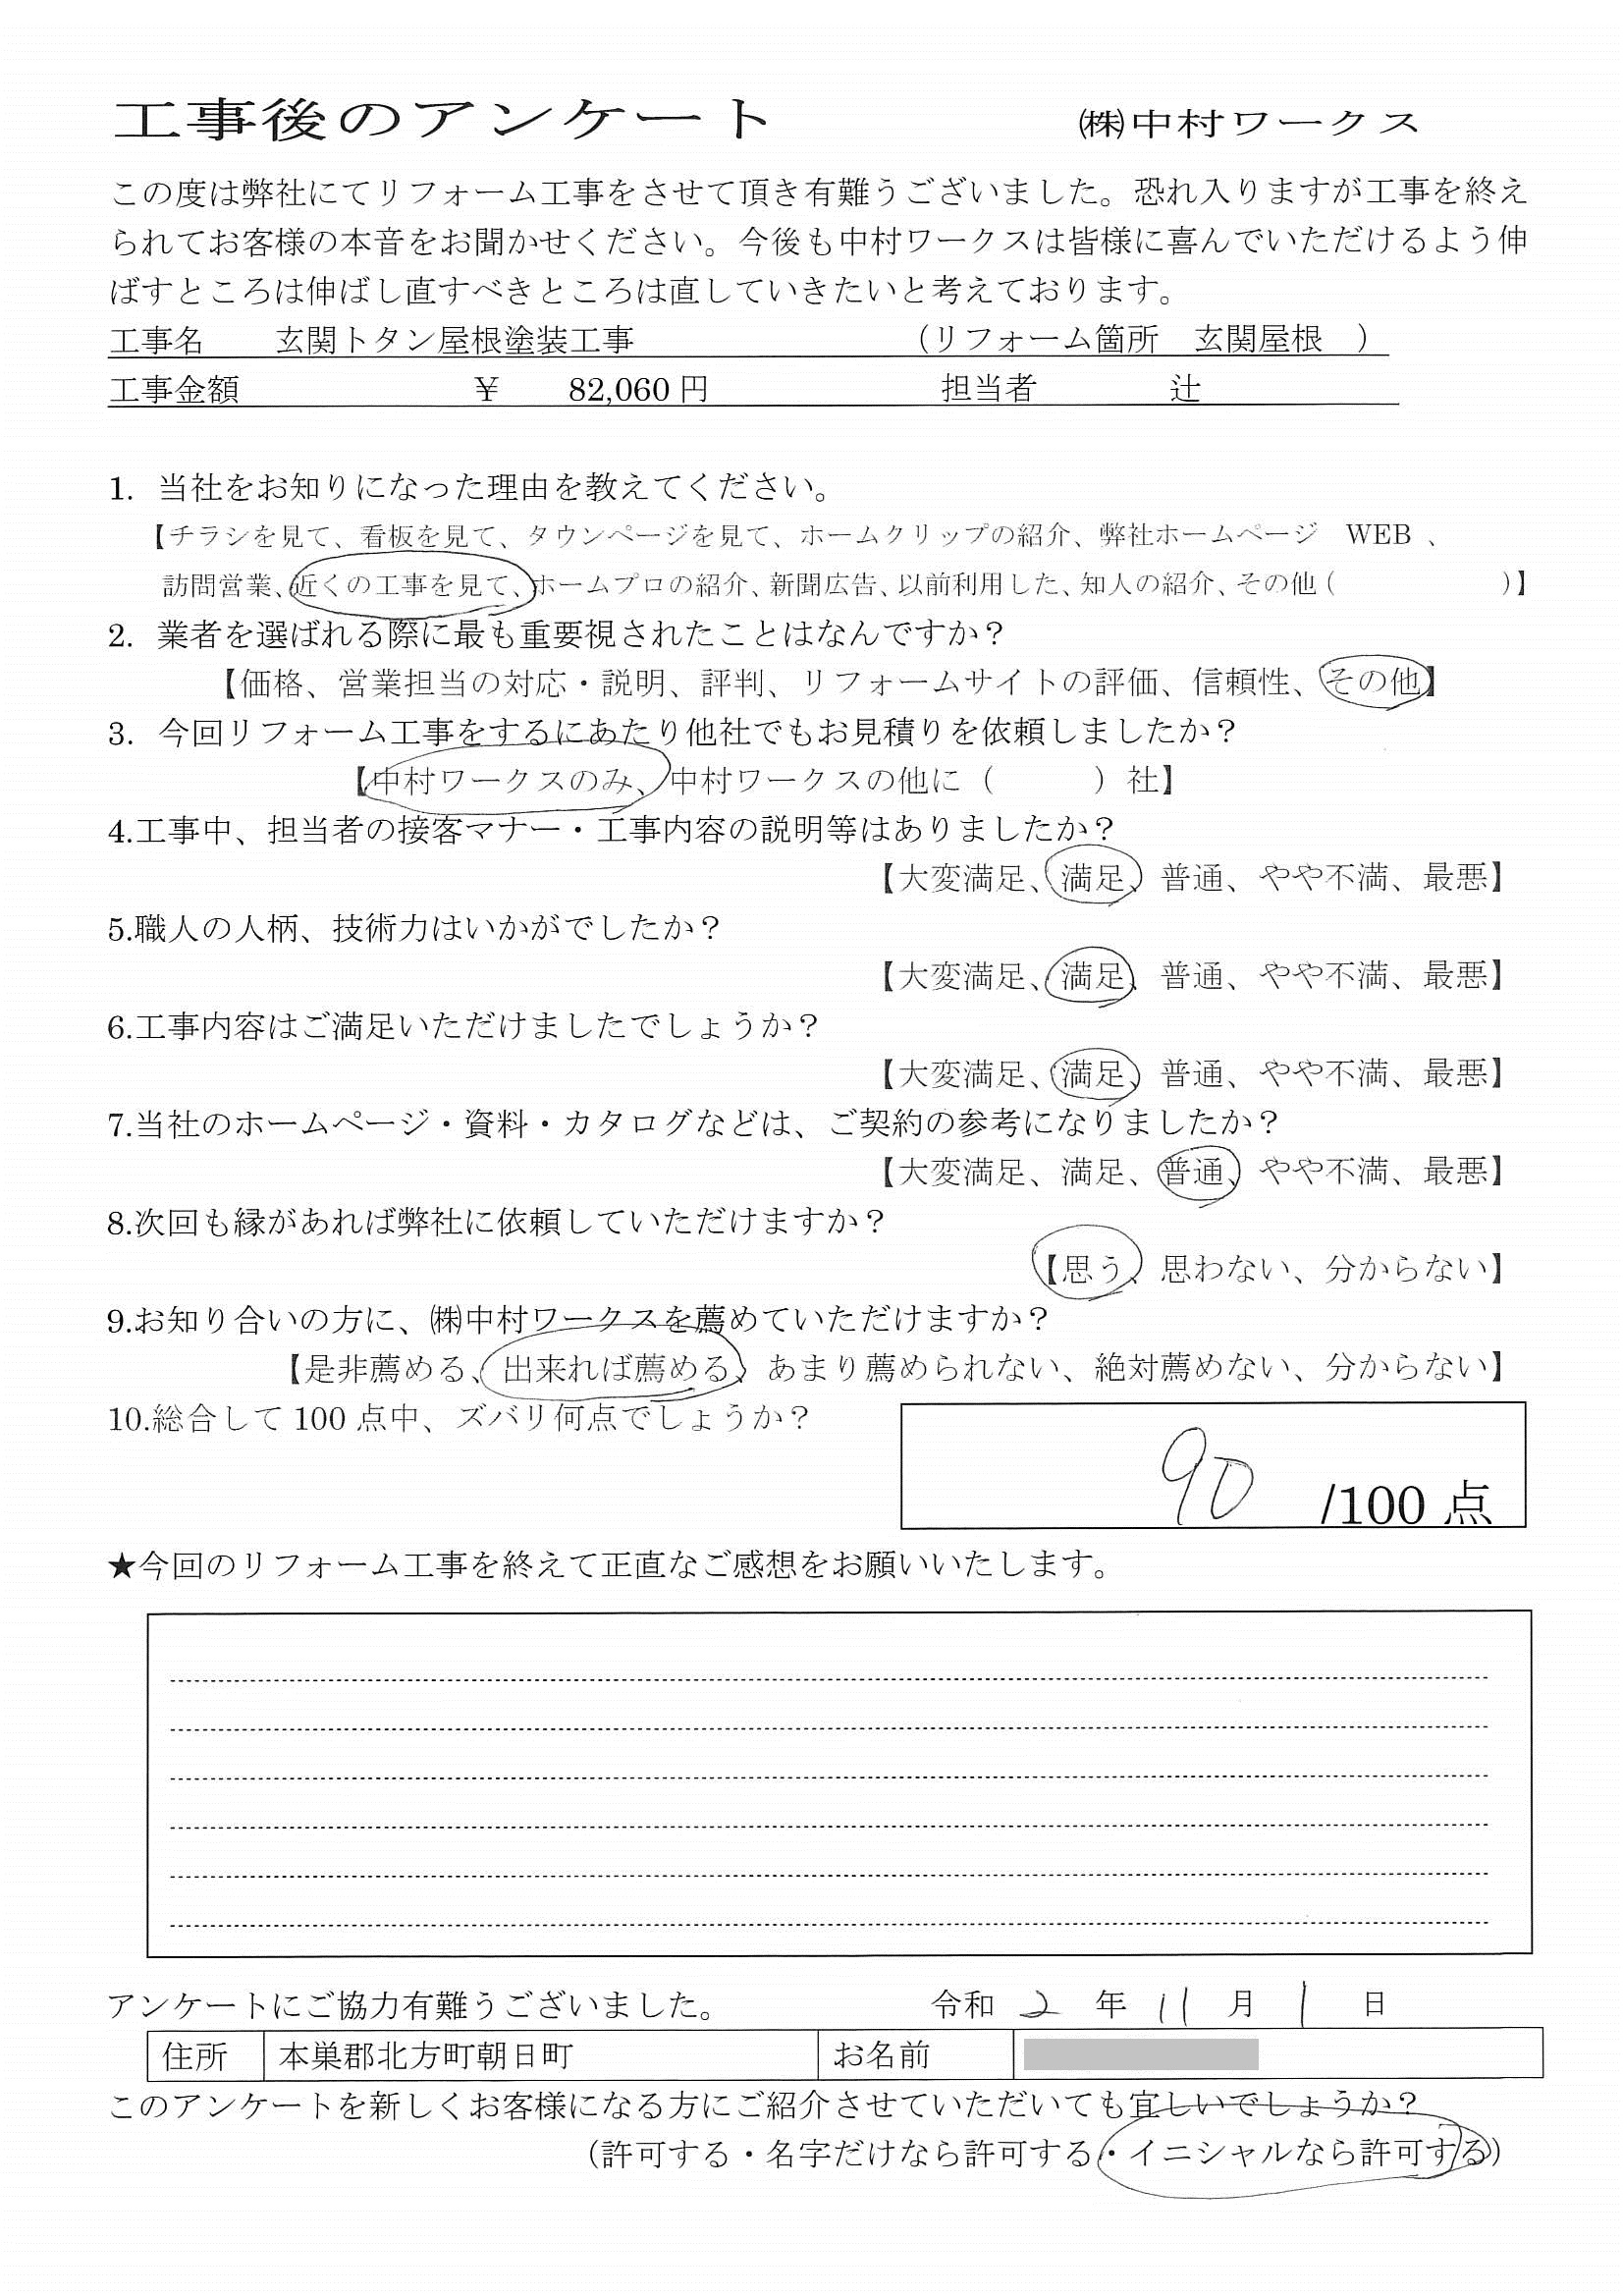 工事後のアンケート ㈱中村ワークス
この度は弊社にてリフォーム工事をさせて頂き有難うございました。恐れ入りますが工事を終え
られてお客様の本音をお聞かせください。今後も中村ワークスは皆様に喜んでいただけるよう伸
ばすところは伸ばし直すべきところは直していきたいと考えております。
工事名 玄関トタン屋根塗装工事 （リフォーム箇所 玄関屋根 ）
工事金額 ￥ 82,060 円 担当者 辻
1. 当社をお知りになった理由を教えてください。
【チラシを見て、看板を見て、タウンページを見て、ホームクリップの紹介、弊社ホームページ WEB 、
訪問営業、近くの工事を見て、ホームプロの紹介、新聞広告、以前利用した、知人の紹介、その他（ ）】
2. 業者を選ばれる際に最も重要視されたことはなんですか？
【価格、営業担当の対応・説明、評判、リフォームサイトの評価、信頼性、その他】
3. 今回リフォーム工事をするにあたり他社でもお見積りを依頼しましたか？
【中村ワークスのみ、中村ワークスの他に（ ）社】
4.工事中、担当者の接客マナー・工事内容の説明等はありましたか？
【大変満足、満足、普通、やや不満、最悪】
5.職人の人柄、技術力はいかがでしたか？
【大変満足、満足、普通、やや不満、最悪】
6.工事内容はご満足いただけましたでしょうか？
【大変満足、満足、普通、やや不満、最悪】
7.当社のホームページ・資料・カタログなどは、ご契約の参考になりましたか？
【大変満足、満足、普通、やや不満、最悪】
8.次回も縁があれば弊社に依頼していただけますか？
【思う、思わない、分からない】
9.お知り合いの方に、㈱中村ワークスを薦めていただけますか？
【是非薦める、出来れば薦める、あまり薦められない、絶対薦めない、分からない】
10.総合して 100 点中、ズバリ何点でしょうか？
90 /100 点
★今回のリフォーム工事を終えて正直なご感想をお願いいたします。
アンケートにご協力有難うございました。 令和 2 年 11 月 1 日
住所 本巣郡北方町朝日町 お名前
このアンケートを新しくお客様になる方にご紹介させていただいても宜しいでしょうか？
（許可する・名字だけなら許可する・イニシャルなら許可する）